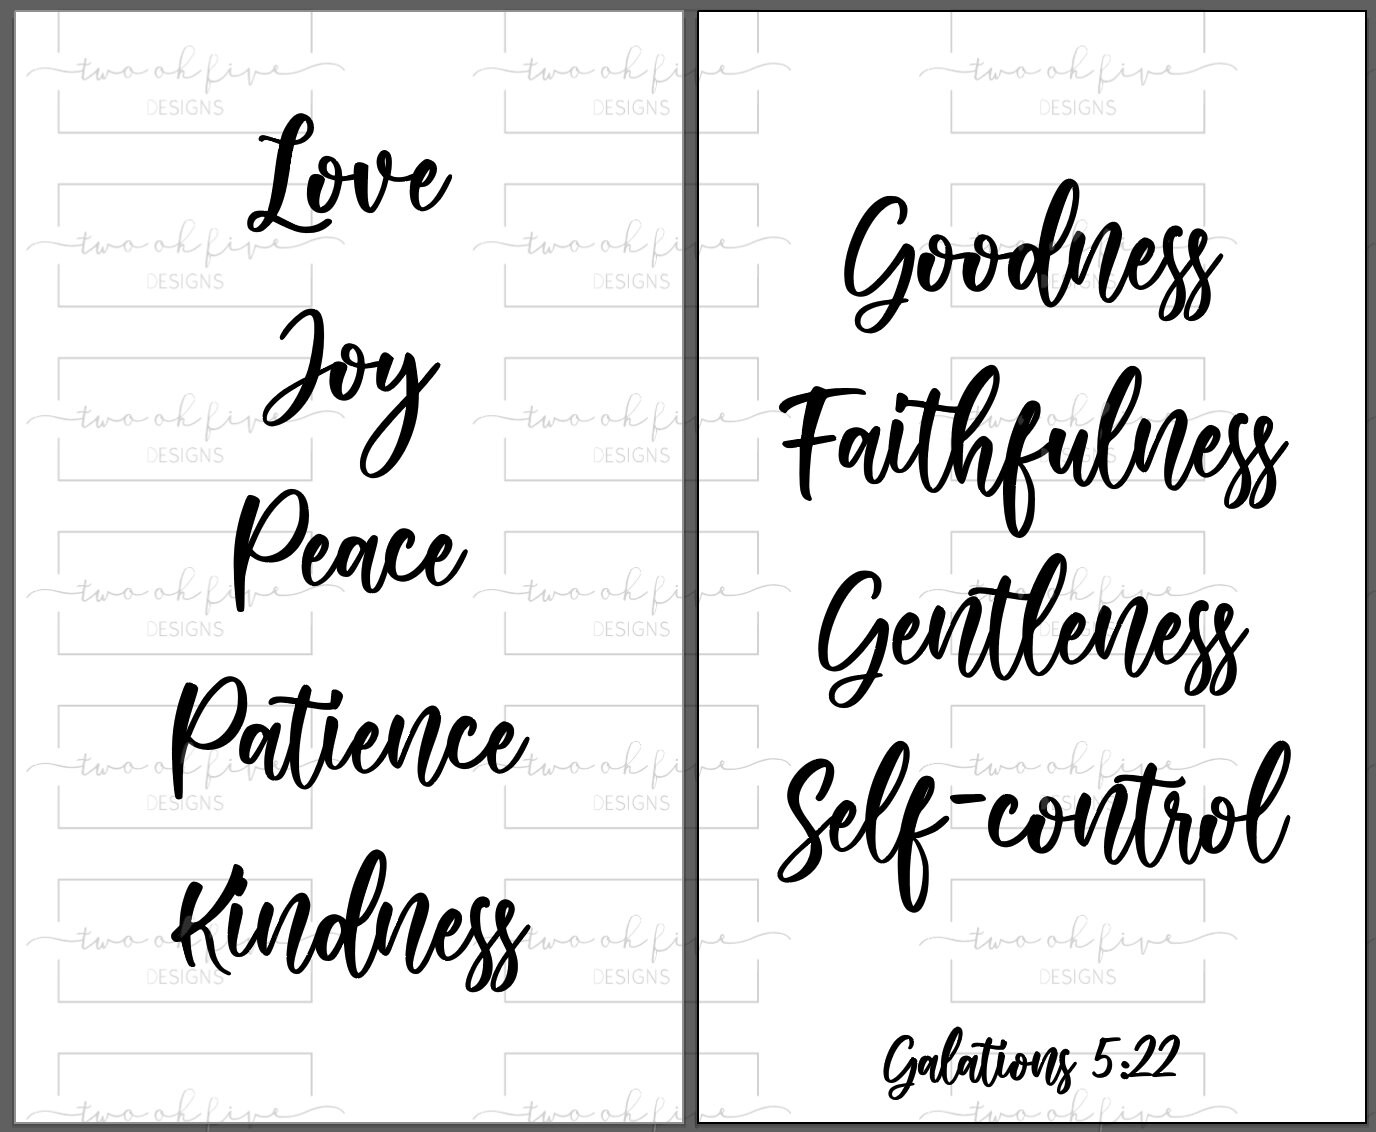 Love
Joy
Peace
Patience
Kindness
Goodness
Faithfulness
Gentleness
Self-control
Galations 5:22
two oh five
DESIGNS